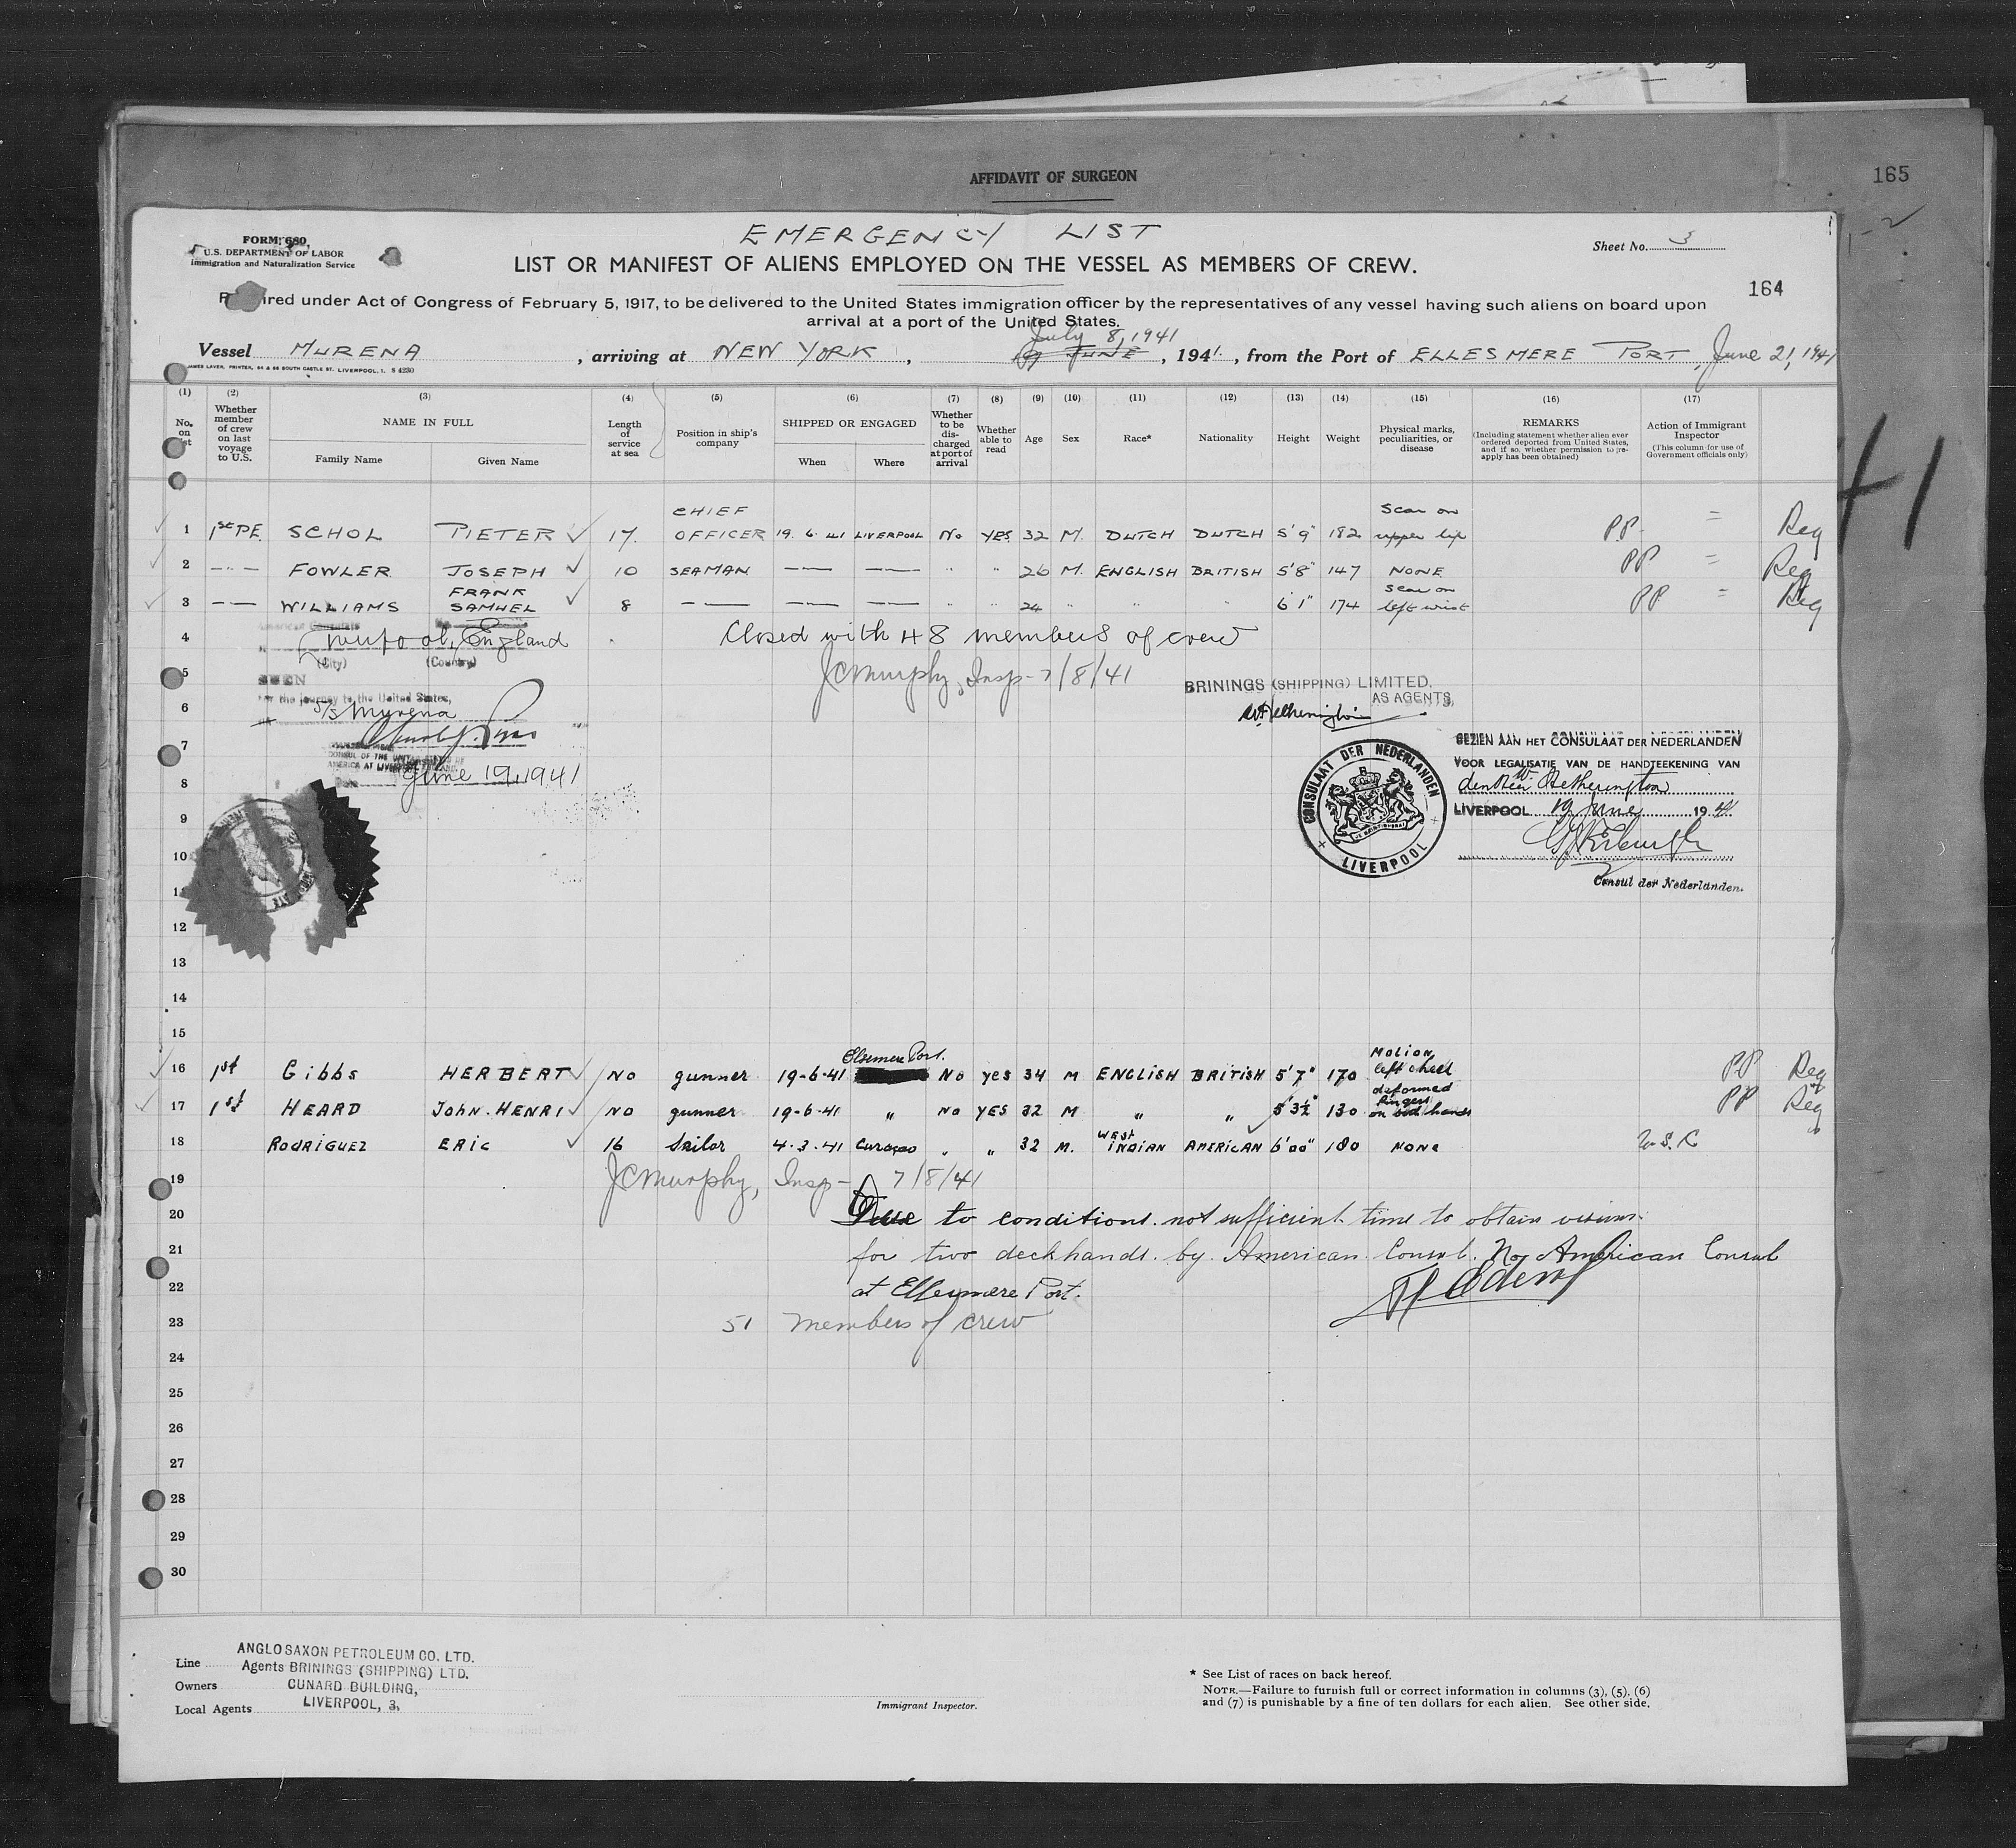 AFFIDAVIT OF SURGEON
165
EMERGENCY LIST
FORM 680,
U.S. DEPARTMENT OF LABOR
Immigration and Naturalization Service
Sheet No. 3
LIST OR MANIFEST OF ALIENS EMPLOYED ON THE VESSEL AS MEMBERS OF CREW.
164
ired under Act of Congress of February 5, 1917, to be delivered to the United States immigration officer by the representatives of any vessel having such aliens on board upon
arrival at a port of the United States.
July 8, 1941
Vessel MURENA, arriving at NEW YORK, JUNE, 1941, from the Port of ELLESMERE PORT, June 21, 1941
JAMES LAVER, PRINTER, 64 & 66 SOUTH CASTLE ST. LIVERPOOL, 1. S 4230
(1) No. on list
(2) Whether member of crew on last voyage to U.S.
(3) NAME IN FULL
Family Name Given Name
(4) Length of service at sea
(5) Position in ship's company
(6) SHIPPED OR ENGAGED
When Where
(7) Whether to be discharged at port of arrival
(8) Whether able to read
(9) Age
(10) Sex
(11) Race*
(12) Nationality
(13) Height
(14) Weight
(15) Physical marks, peculiarities, or disease
(16) REMARKS
(Including statement whether alien ever ordered deported from United States, and if so, whether permission to re-apply has been obtained)
(17) Action of Immigrant Inspector
(This column for use of Government officials only)
41
1 1st PE. SCHOL PIETER 17. CHIEF OFFICER 19.6.41 LIVERPOOL No YES 32 M. DUTCH DUTCH 5'9" 182 Scar on upper lip PP = Reg
2 — " — FOWLER JOSEPH 10 SEAMAN — " — — " — " " 26 M. ENGLISH BRITISH 5'8" 147 NONE PP = Reg
3 — " — WILLIAMS FRANK SAMUEL 8 — " — — " — — " — " " 24 " " " 6'1" 174 Scar on left wrist PP = Reg
4 Liverpool, England Closed with 48 members of crew
(City) (Country)
5 JCMurphy, Insp - 7/8/41
SEEN
For the journey to the United States,
BRININGS (SHIPPING) LIMITED.
AS AGENTS,
6 S/S Murena
W Hetherington
7
CONSUL OF THE UNITED STATES OF
AMERICA AT LIVERPOOL, ENGLAND.
Date June 19, 1941
GEZIEN AAN HET CONSULAAT DER NEDERLANDEN
VOOR LEGALISATIE VAN DE HANDTEEKENING VAN
den Heer W. Hetherington
LIVERPOOL 19 June 1941
Consul der Nederlanden.
CONSULAAT DER NEDERLANDEN
LIVERPOOL
8
9
10
11
12
13
14
15
16 1st Gibbs HERBERT No gunner 19-6-41 Elsemere Port. No yes 34 M ENGLISH BRITISH 5'7" 170 Mol on left cheek PP Reg
17 1st HEARD John-HENRI No gunner 19-6-41 " No YES 32 M " " 5'3½" 130 deformed fingers on both hands PP Reg
18 RODRIGUEZ ERIC 16 Sailor 4.3.41 Curaçao " " 32 M. WEST INDIAN AMERICAN 6'00" 180 NONE U.S.C
19 JCMurphy, Insp - 7/8/41
20 Due to conditions not sufficient time to obtain
21 for two deckhands by American Consul. No American Consul
22 at Ellesmere Port.
23 51 members of crew
24
25
26
27
28
29
30
Line ANGLO SAXON PETROLEUM CO. LTD.
Agents BRININGS (SHIPPING) LTD.
Owners CUNARD BUILDING,
Local Agents LIVERPOOL, 3.
Immigrant Inspector.
* See List of races on back hereof.
NOTE.—Failure to furnish full or correct information in columns (3), (5), (6)
and (7) is punishable by a fine of ten dollars for each alien. See other side.